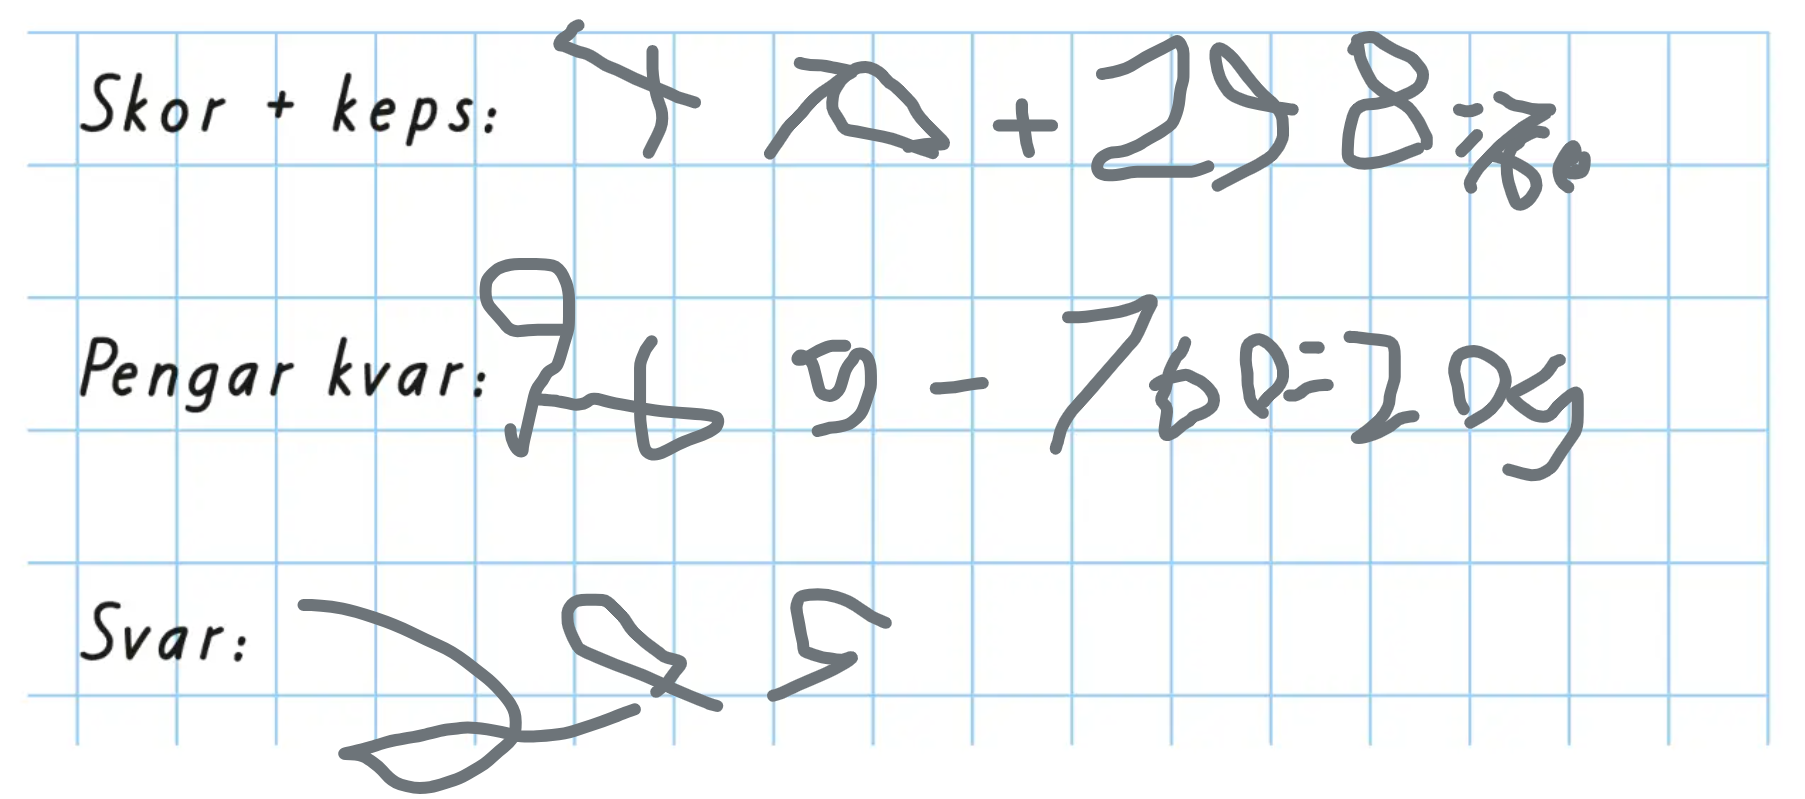 Skor + keps: + 298 =
Pengar kvar: 965 - 760=205
Svar: 205